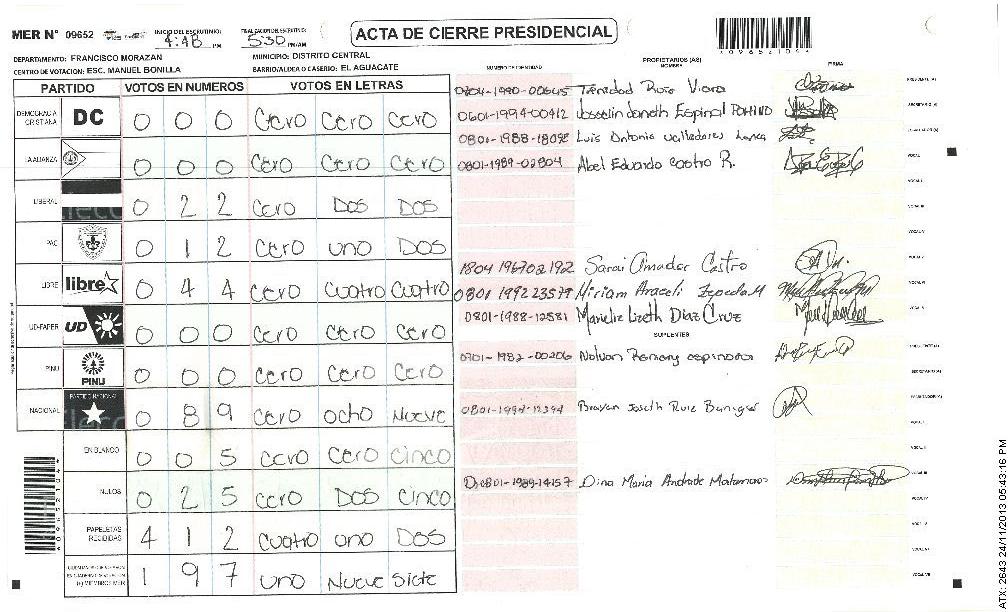 MER N° 09652 INICIO DEL ESCRUTINIO: 4:48 PM FINALIZACION DEL ESCRUTINIO: 5:30 PM/AM
ACTA DE CIERRE PRESIDENCIAL
DEPARTAMENTO: FRANCISCO MORAZAN MUNICIPIO: DISTRITO CENTRAL
CENTRO DE VOTACION: ESC. MANUEL BONILLA BARRIO/ALDEA O CASERIO: EL AGUACATE
PARTIDO VOTOS EN NUMEROS VOTOS EN LETRAS
DEMOCRACIA CRISTIANA DC 0 0 0 Cero Cero Cero
LA ALIANZA 0 0 0 Cero Cero Cero
LIBERAL 0 2 2 Cero Dos Dos
PAC 0 1 2 Cero uno Dos
LIBRE libre 0 4 4 Cero Cuatro Cuatro
UD-FAPER UD 0 0 0 Cero Cero Cero
PINU PINU 0 0 0 Cero Cero Cero
NACIONAL PARTIDO NACIONAL 0 8 9 Cero ocho Nueve
EN BLANCO 0 0 5 Cero Cero Cinco
NULOS 0 2 5 Cero Dos Cinco
PAPELETAS RECIBIDAS 4 1 2 Cuatro uno Dos
1 9 7 uno Nueve Siete
NUMERO DE IDENTIDAD PROPIETARIOS (AS) NOMBRE FIRMA
Trinidad Ruiz PRESIDENTE (A)
0601-1994-00412 Josselin Janeth Espinal SECRETARIO (A)
Luis Antonio Valladares ESCRUTADOR (A)
0801-1989-02804 Abel Eduardo Castro R. VOCAL I
1804 196702192 Sarai Amador Castro
Miriam Araceli Zepeda M
0801-1988-12581 Lizeth Diaz Cruz
SUPLENTES
0801-1982-00206
Joseth Ruiz
0801-1989-14157 Dina Maria Andrade Matamoros
ATX: 2643 24/11/2013 05:43:16 PM